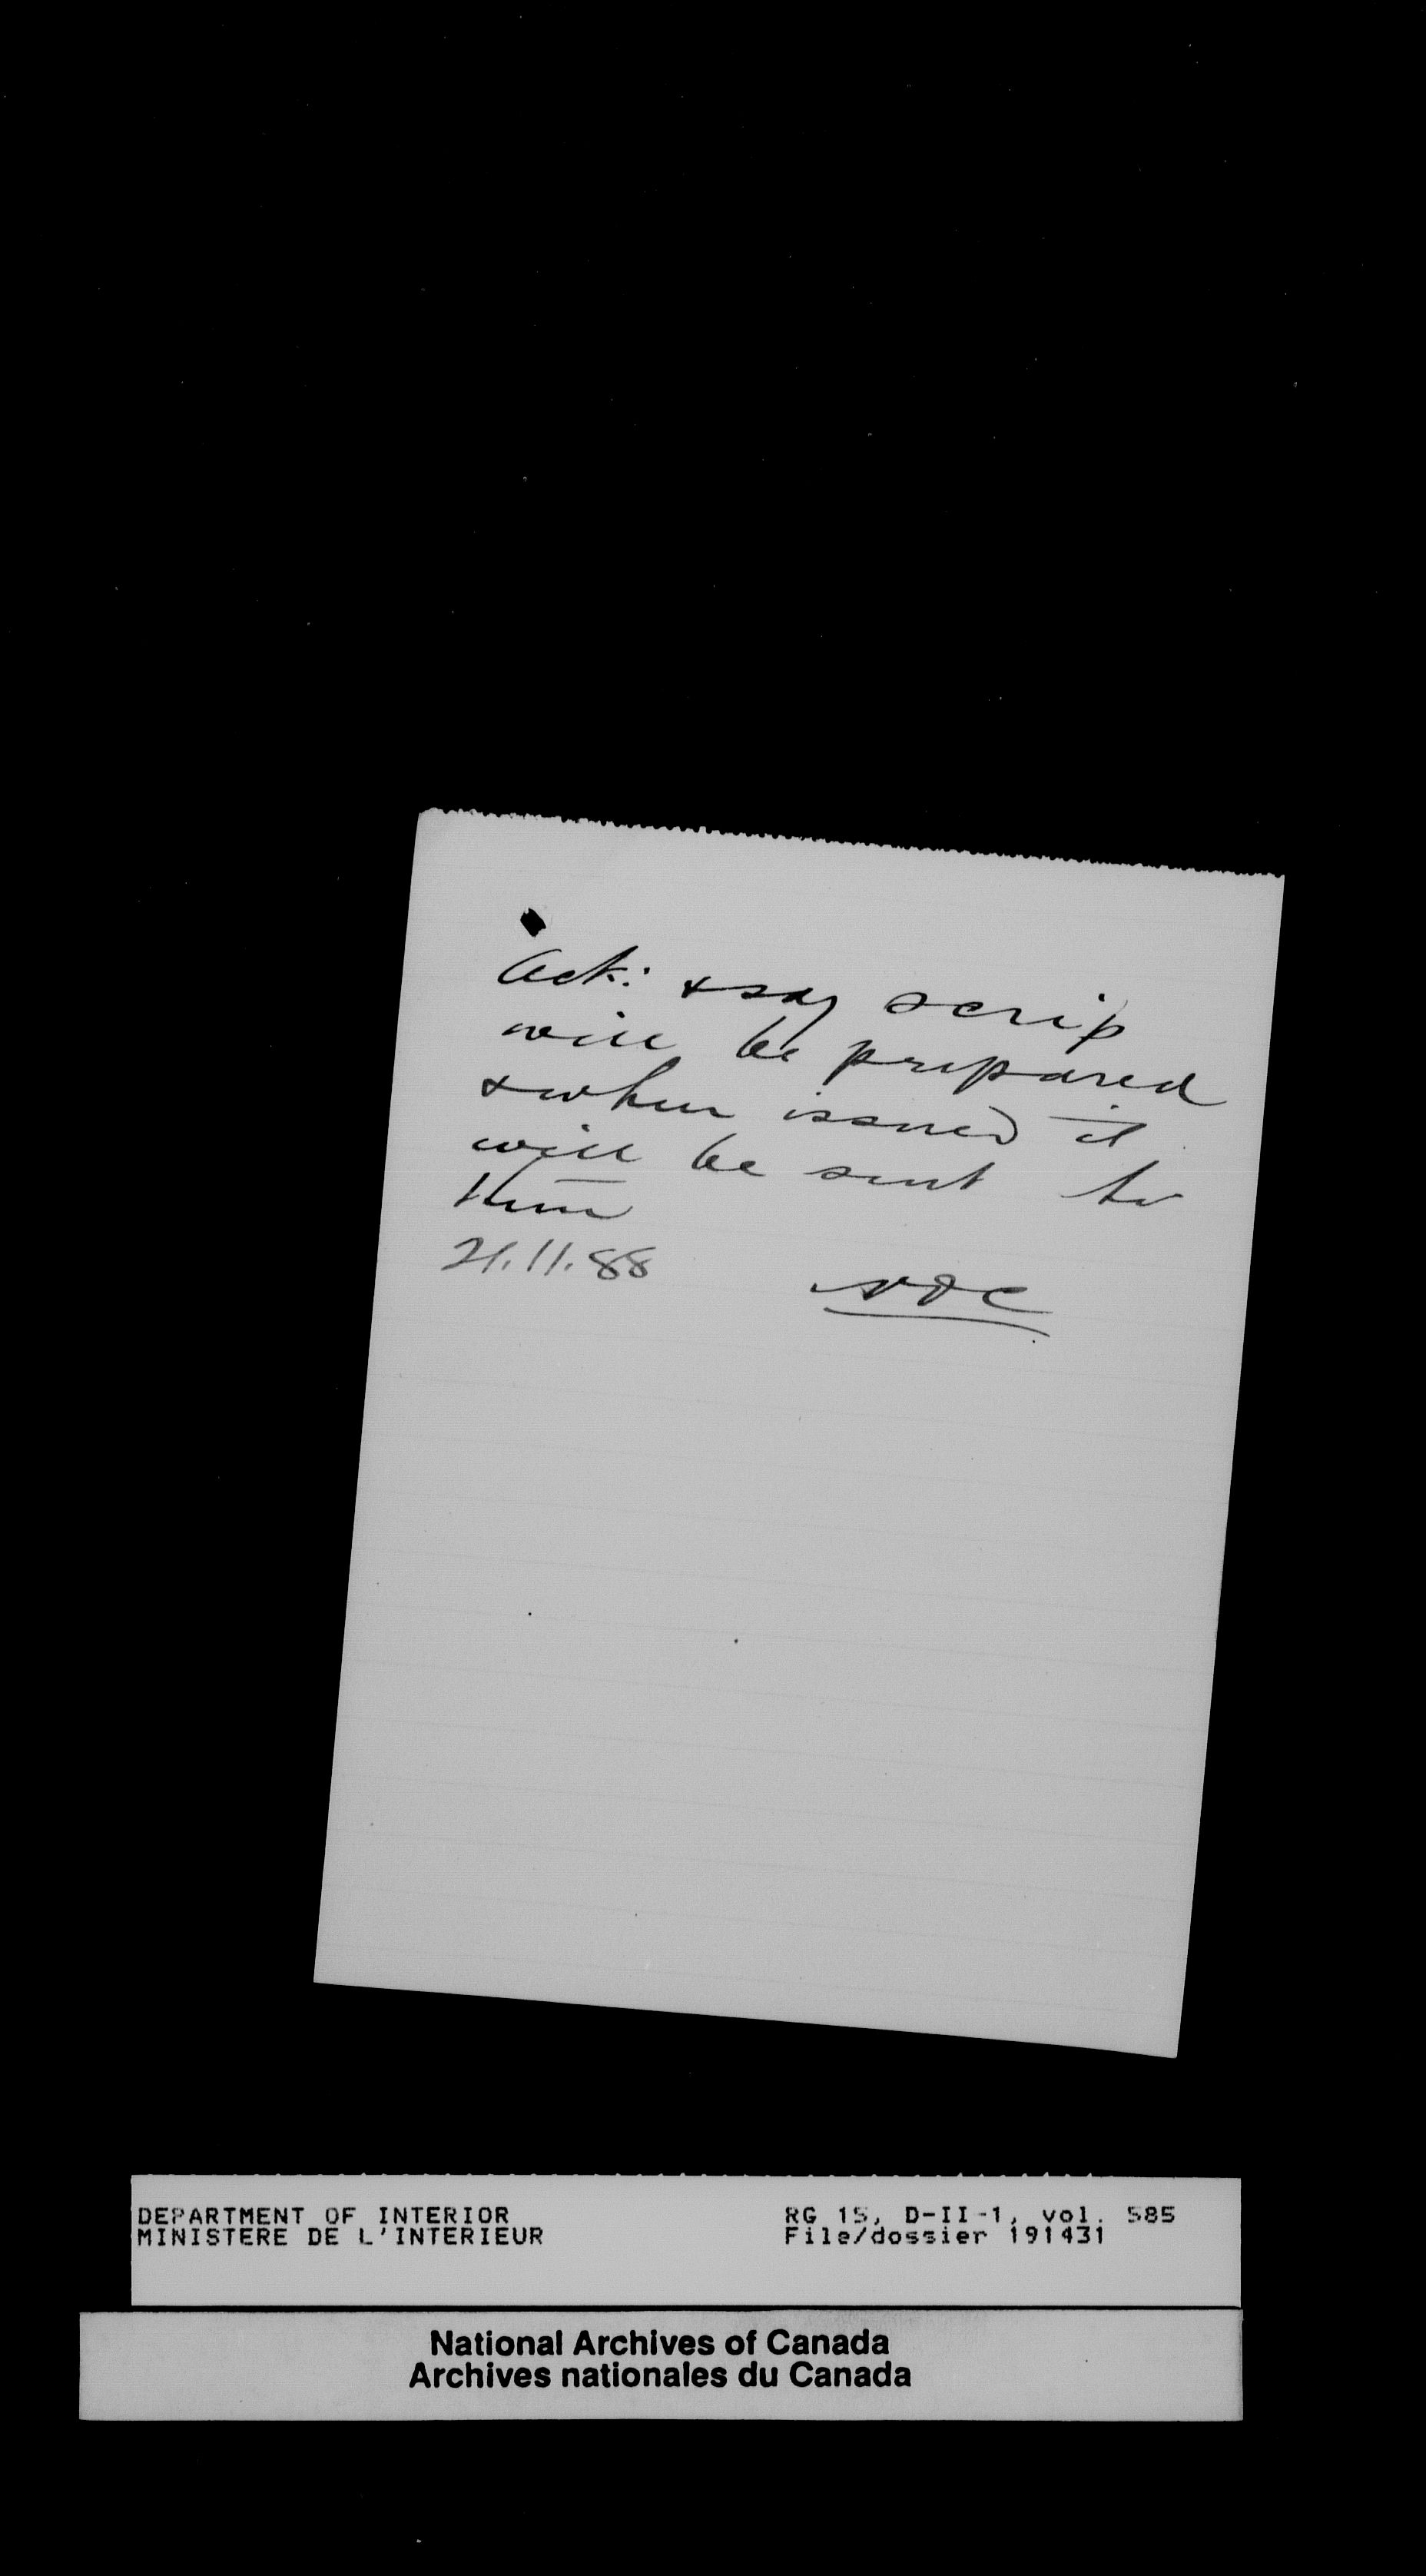 Ack: & say scrip
will be prepared
& when issued it
will be sent to
him
21.11.88
NOC
DEPARTMENT OF INTERIOR
MINISTERE DE L'INTERIEUR
RG 15, D-II-1, vol. 585
File/dossier 191431
National Archives of Canada
Archives nationales du Canada